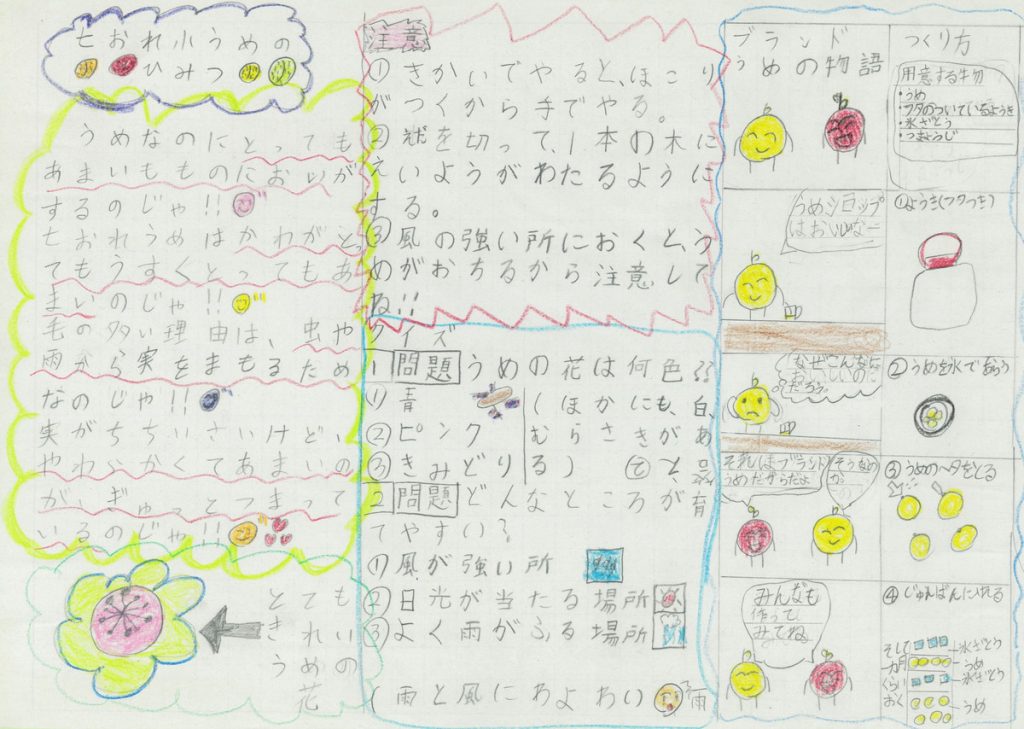 七おれ小うめの
ひみつ
うめなのにとっても
あまいもものにおいが
するのじゃ!!
七おれうめはかわがとっ
てもうすくとってもあ
まいのじゃ!!
毛の多い理由は、虫や
雨から実をまもるため
なのじゃ!!
実がちちいさいけど、
やわらかくてあまいの
がぎゅっとつまって
いるのじゃ!!
とても
きれい
うめの
花
注意
①きかいでやると、ほこり
がつくから手でやる。
②を切って、1本の木に
えいようがわたるように
する。
③風の強い所におくと、う
めがおちるから注意して
ね!!
クイズ
1問題うめの花は何色??
①青
②ピンク
③きみどり
(ほかにも、白、
むらさきがあ
る)
2問題どんなところが育
てやすい?
①風が強い所
②日光が当たる場所
③よく雨がふる場所
(雨と風によわい
雨
ブランド
うめの物語
うめシロップ
はおいしなー
なぜこんなに
おいしいのに
だろう。
それはブランド
うめだからだよ
そうなの
か
みんなも
作って
みてね
つくり方
用意する物
・うめ
・フタのついているようき
・氷ざとう
・つまようじ
①ようき(フタつき)
②うめを水であらう
③うめのヘタをとる
④じゅんばんに入れる
そして
カ月
くらい
おく
氷ざとう
うめ
氷ざとう
うめ